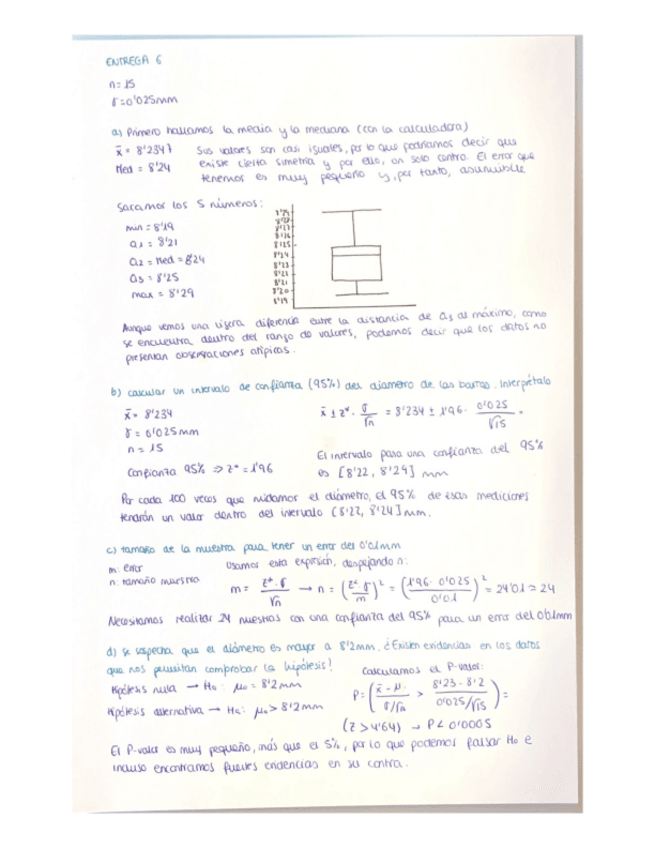 ENTREGA 6
n=15
σ=0'025mm
a) Primero hallamos la media y la mediana (con la calculadora)
x̄ = 8'2347 Sus valores son casi iguales, por lo que podríamos decir que
Med = 8'24 existe cierta simetría y por ello, un solo centro. El error que
tenemos es muy pequeño y, por tanto, asumible
Sacamos los 5 números:
min = 8'19
Q1 = 8'21
Q2 = Med = 8'24
Q3 = 8'25
max = 8'29
8'24
8'23
8'22
8'21
8'20
8'19
Aunque vemos una ligera diferencia entre la distancia de Q3 al máximo, como
se encuentra dentro del rango de valores, podemos decir que los datos no
presentan observaciones atípicas.
b) calcular un intervalo de confianza (95%) del diámetro de las barras. Interprétalo
x̄ = 8'234
σ = 0'025mm
n = 15
Confianza 95% ⇒ z* = 1'96
x̄ ± z* · σ/√n = 8'234 ± 1'96 · 0'025/√15 =
El intervalo para una confianza del 95%
es [8'22, 8'24] mm
Por cada 100 veces que midamos el diámetro, el 95% de esas mediciones
tendrán un valor dentro del intervalo [8'22, 8'24] mm.
c) tamaño de la muestra para tener un error del 0'01mm
m: error
n: tamaño muestra
Usamos esta expresión, despejando n:
m = z*·σ/√n → n = (z*·σ/m)² = (1'96·0'025/0'01)² = 24'01 ≈ 24
Necesitamos realizar 24 muestras con una confianza del 95% para un error del 0'01mm
d) se sospecha que el diámetro es mayor a 8'2mm. ¿Existen evidencias en los datos
que nos permitan comprobar la hipótesis?
Hipótesis nula → H₀: μ₀ = 8'2mm
Hipótesis alternativa → Ha: μ₀ > 8'2mm
Calculamos el P-valor:
P = (x̄ - μ/σ/√n > 8'23 - 8'2/0'025/√15) =
(Z > 4'64) → P < 0'0005
El P-valor es muy pequeño, más que el 5%, por lo que podemos falsar H₀ e
incluso encontramos fuertes evidencias en su contra.